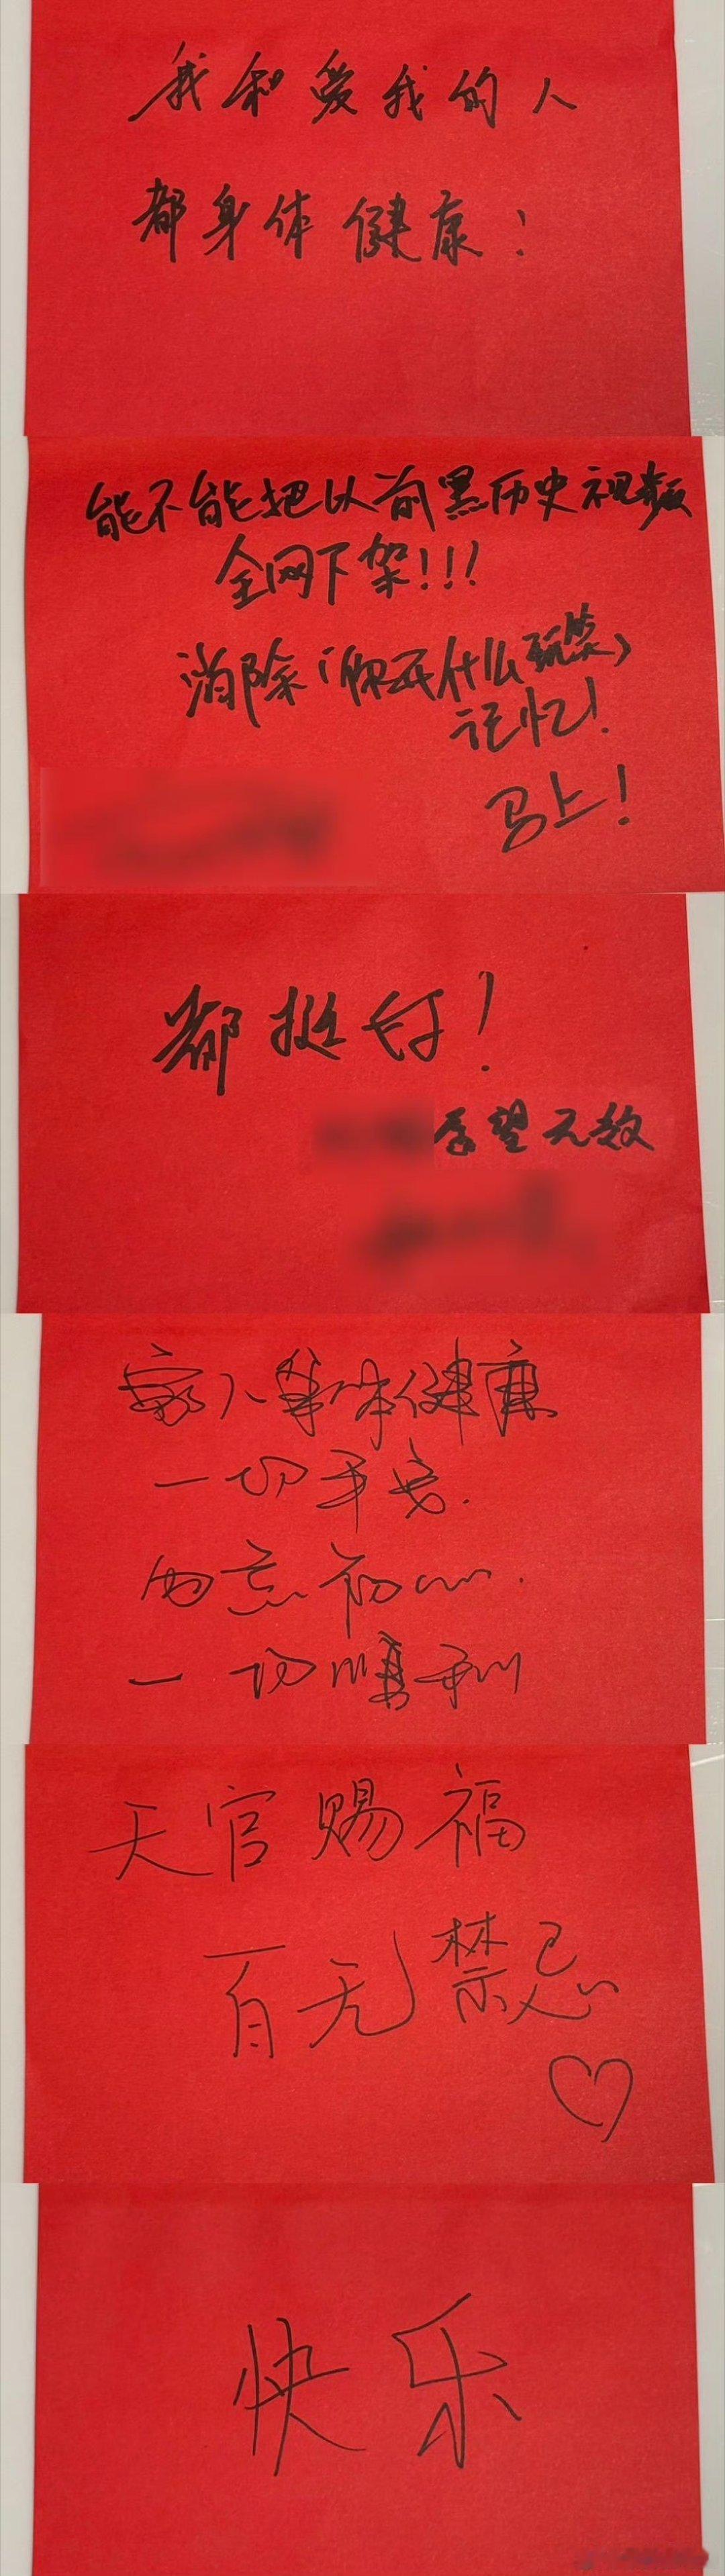 我和爱我的人
都身体健康！
能不能把以前黑历史视频
全网下架!!!
消除“你开什么玩笑”
记忆！
马上！
都挺好！
希望无数
家人身体健康
一切平安.
勿忘初心.
一切顺利
天官赐福
百无禁忌
快乐